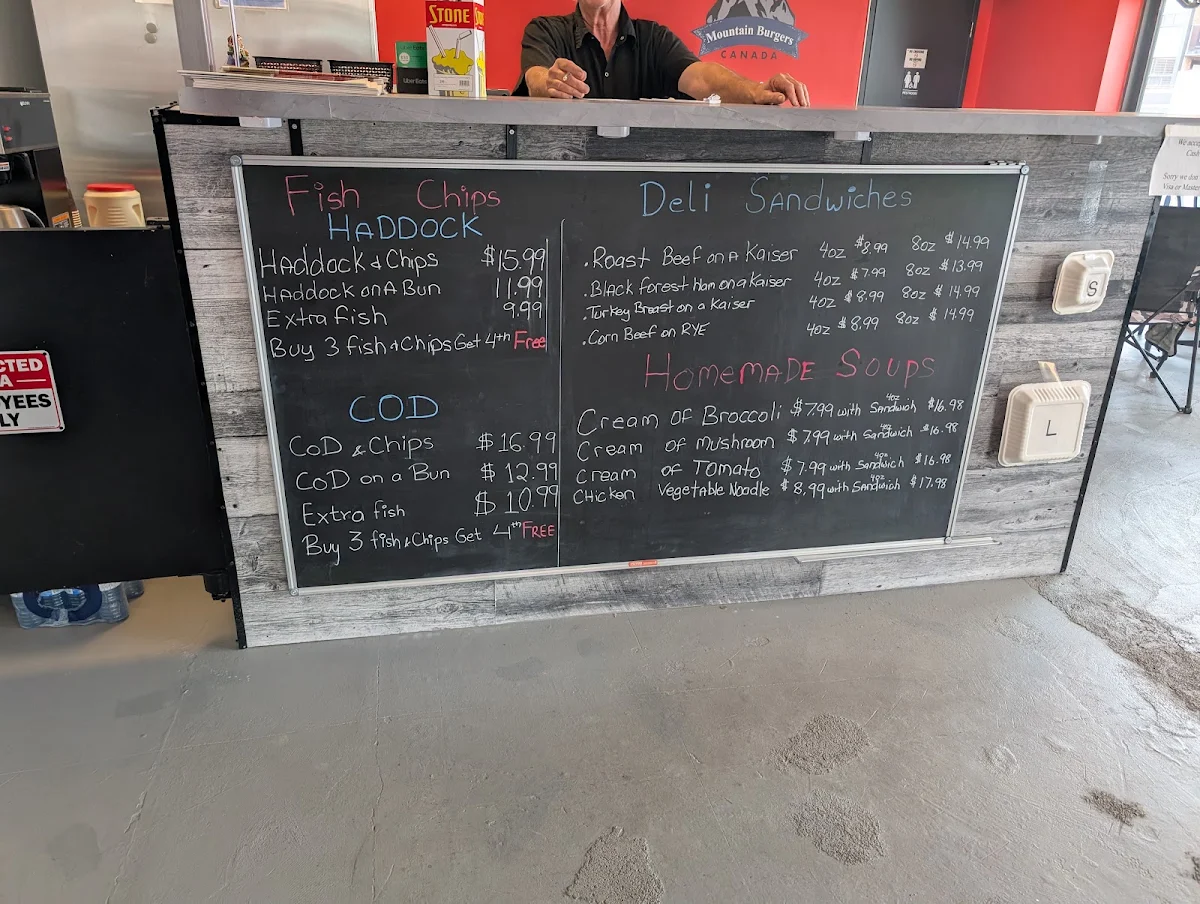 STONE
Mountain Burgers
CANADA
Uber Eats
RESTROOM
We accept
Cash
Sorry we don't
Visa or Master
CTED
A
YEES
LY
Fish Chips
HADDOCK
HAddock & Chips $15.99
HAddock on A Bun 11.99
Extra fish 9.99
Buy 3 fish & Chips Get 4th Free
COD
CoD & Chips $16.99
CoD on a Bun $12.99
Extra fish $10.99
Buy 3 fish & Chips Get 4th FREE
Deli Sandwiches
.Roast Beef on A Kaiser 4oz $8.99 8oz $14.99
.Black forest Ham on a Kaiser 4oz $7.99 8oz $13.99
.Turkey Breast on a Kaiser 4oz $8.99 8oz $14.99
.Corn Beef on RYE 4oz $8.99 8oz $14.99
HOMEMADE SOUPS
Cream of Broccoli $7.99 with 4oz Sandwich $16.98
Cream of Mushroom $7.99 with 4oz Sandwich $16.98
Cream of Tomato $7.99 with 4oz Sandwich $16.98
Chicken Vegetable Noodle $8.99 with 4oz Sandwich $17.98
S
L